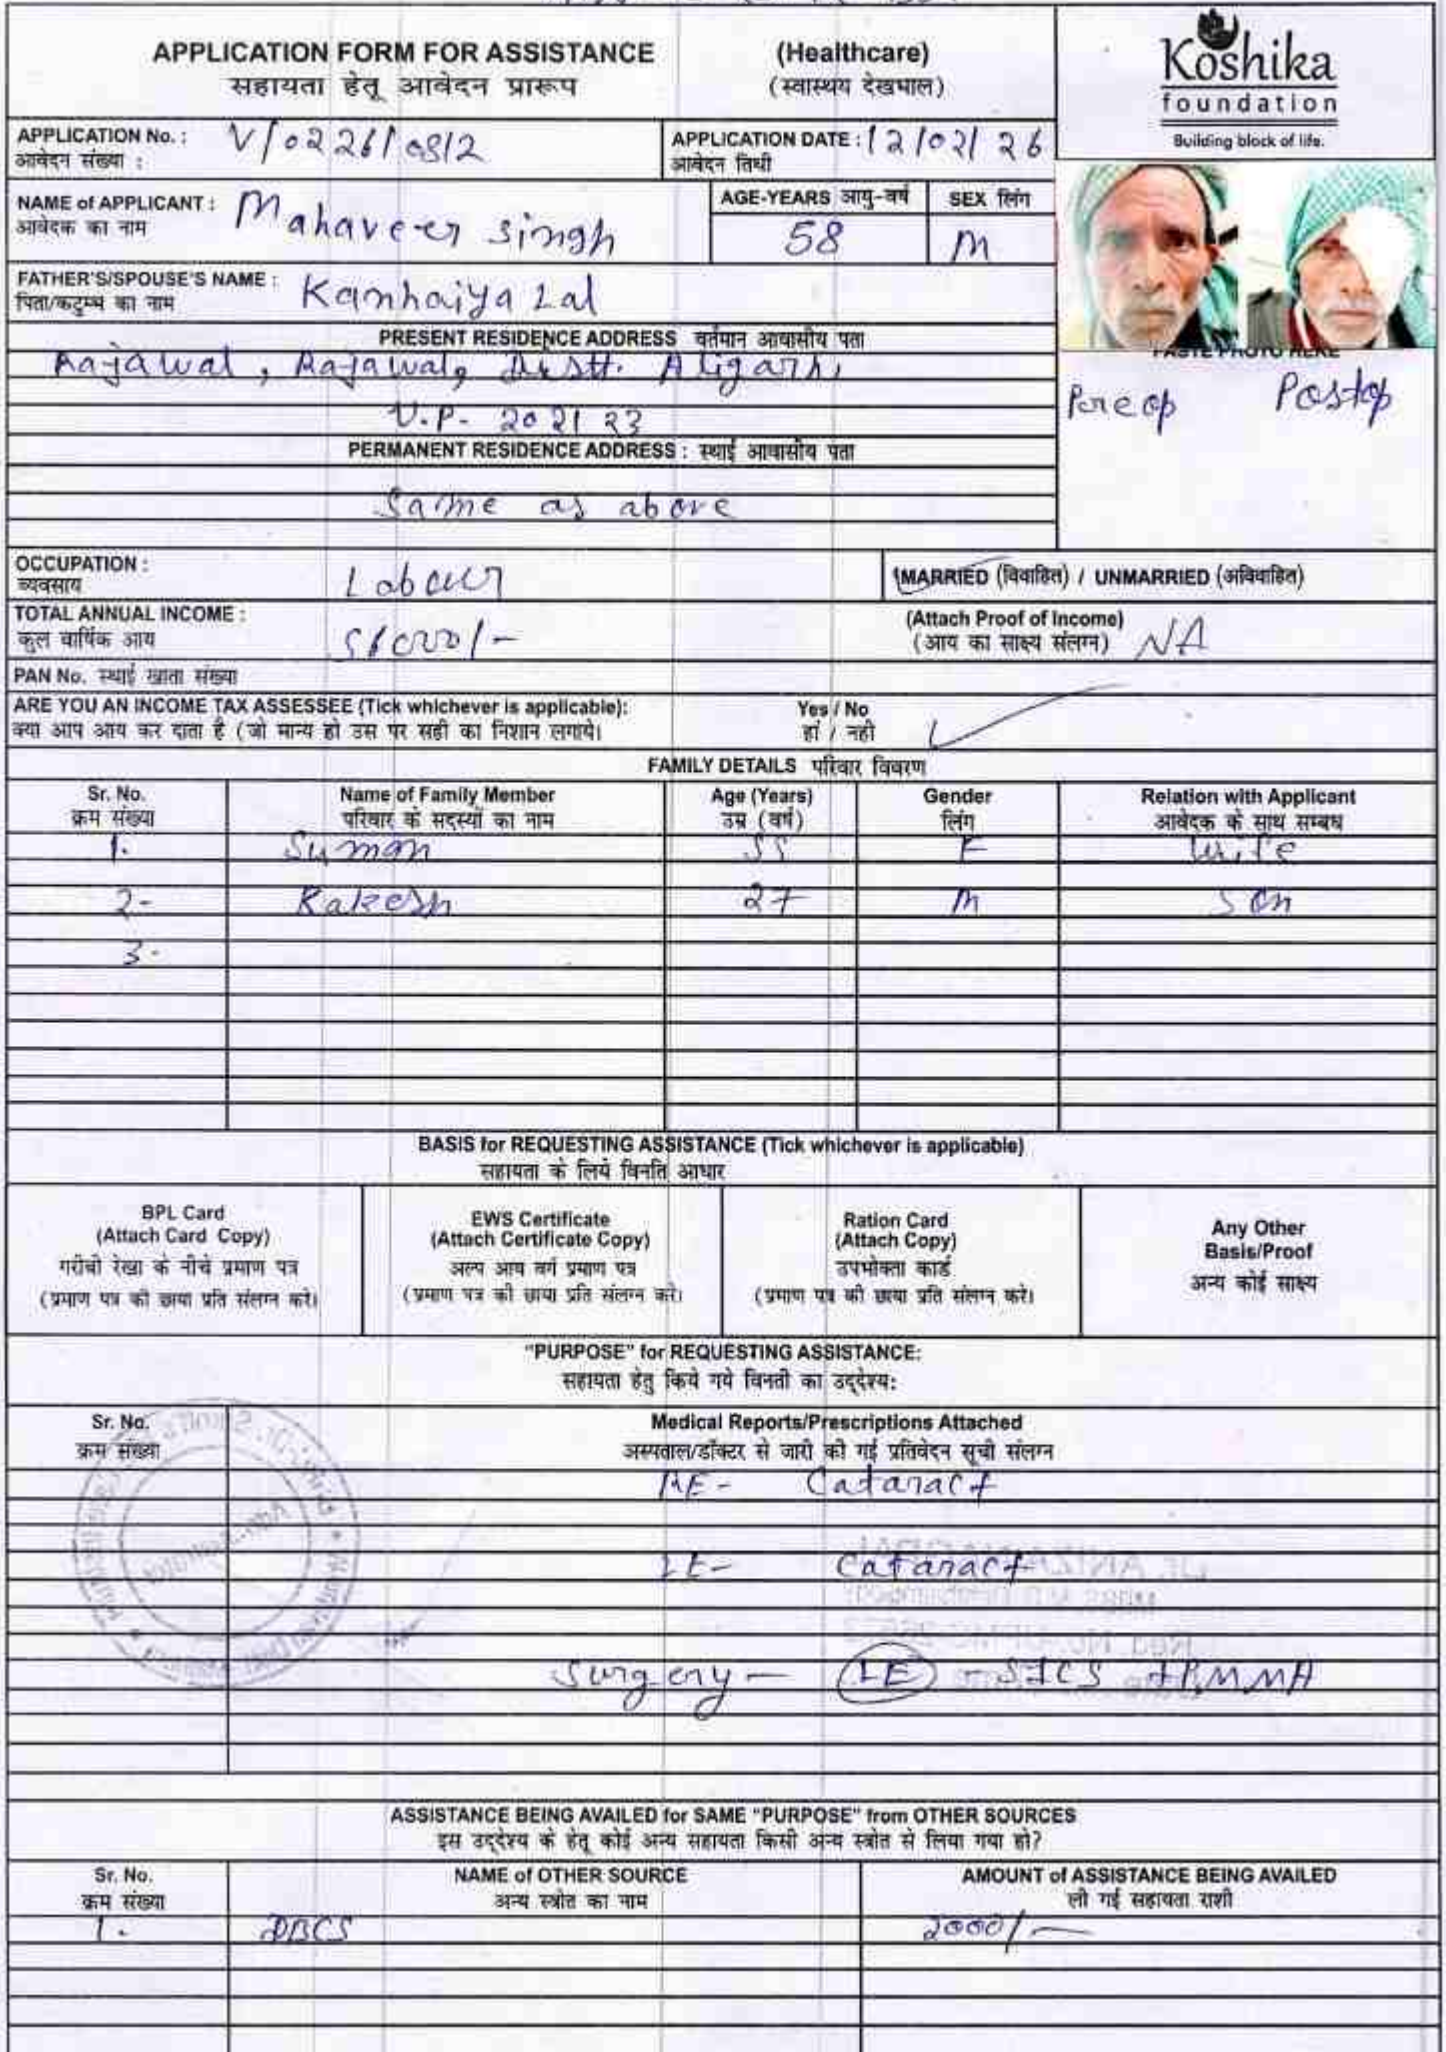 APPLICATION FORM FOR ASSISTANCE (Healthcare)
सहायता हेतू आवेदन प्रारूप (स्वास्थय देखभाल)
Koshika
foundation
Building block of life.
APPLICATION No. : V/0226/0812 APPLICATION DATE : 12/02/26
आवेदन संख्या : आवेदन तिथी
NAME of APPLICANT : Mahaveer Singh AGE-YEARS आयु-वर्ष SEX लिंग
आवेदक का नाम 58 M
FATHER'S/SPOUSE'S NAME : Kanhaiya Lal
पिता/कटुम्ब का नाम
PRESENT RESIDENCE ADDRESS वर्तमान आवासीय पता
PASTE PHOTO HERE
Rajawal, Rajawal, Distt. Aligarh,
Preop Postop
U.P- 202123
PERMANENT RESIDENCE ADDRESS : स्थाई आवासीय पता
Same as above
OCCUPATION : Labour MARRIED (विवाहित) / UNMARRIED (अविवाहित)
व्यवसाय
TOTAL ANNUAL INCOME : (Attach Proof of Income)
कुल वार्षिक आय (आय का साक्ष्य संलग्न) NA
PAN No. स्थाई खाता संख्या
ARE YOU AN INCOME TAX ASSESSEE (Tick whichever is applicable): Yes / No
क्या आप आय कर दाता है (जो मान्य हो उस पर सही का निशान लगाये। हां / नही
FAMILY DETAILS परिवार विवरण
Sr. No. Name of Family Member Age (Years) Gender Relation with Applicant
क्रम संख्या परिवार के सदस्यों का नाम उम्र (वर्ष) लिंग आवेदक के साथ सम्बध
1. Suman 55 F Wife
2- Rakesh 27 M Son
3-
BASIS for REQUESTING ASSISTANCE (Tick whichever is applicable)
सहायता के लिये विनति आधार
BPL Card
(Attach Card Copy)
गरीबी रेखा के नीचे प्रमाण पत्र
(प्रमाण पत्र की छाया प्रति संलग्न करे।
EWS Certificate
(Attach Certificate Copy)
अल्प आय वर्ग प्रमाण पत्र
(प्रमाण पत्र की छाया प्रति संलग्न करे।
Ration Card
(Attach Copy)
उपभोक्ता कार्ड
(प्रमाण पत्र की छाया प्रति संलग्न करे।
Any Other
Basis/Proof
अन्य कोई साक्ष्य
"PURPOSE" for REQUESTING ASSISTANCE:
सहायता हेतु किये गये विनती का उद्देश्य:
Sr. No. Medical Reports/Prescriptions Attached
क्रम संख्या अस्पताल/डॉक्टर से जारी की गई प्रतिवेदन सूची संलग्न
RE- Cataract
LE- Cataract
Surgery- LE - SICS PMMA
ASSISTANCE BEING AVAILED for SAME "PURPOSE" from OTHER SOURCES
इस उद्देश्य के हेतू कोई अन्य सहायता किसी अन्य स्त्रोत से लिया गया हो?
Sr. No. NAME of OTHER SOURCE AMOUNT of ASSISTANCE BEING AVAILED
क्रम संख्या अन्य स्त्रोत का नाम ली गई सहायता राशी
1. DBCS 2000/-